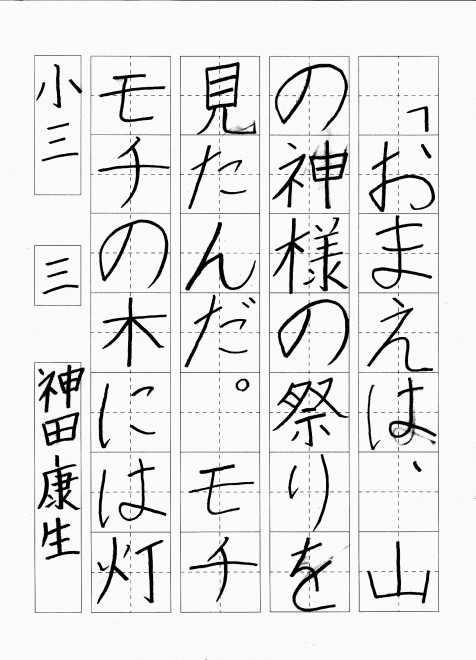 「おまえは、山
の神様の祭りを
見たんだ。モチ
モチの木には灯
小三 三 神田康生